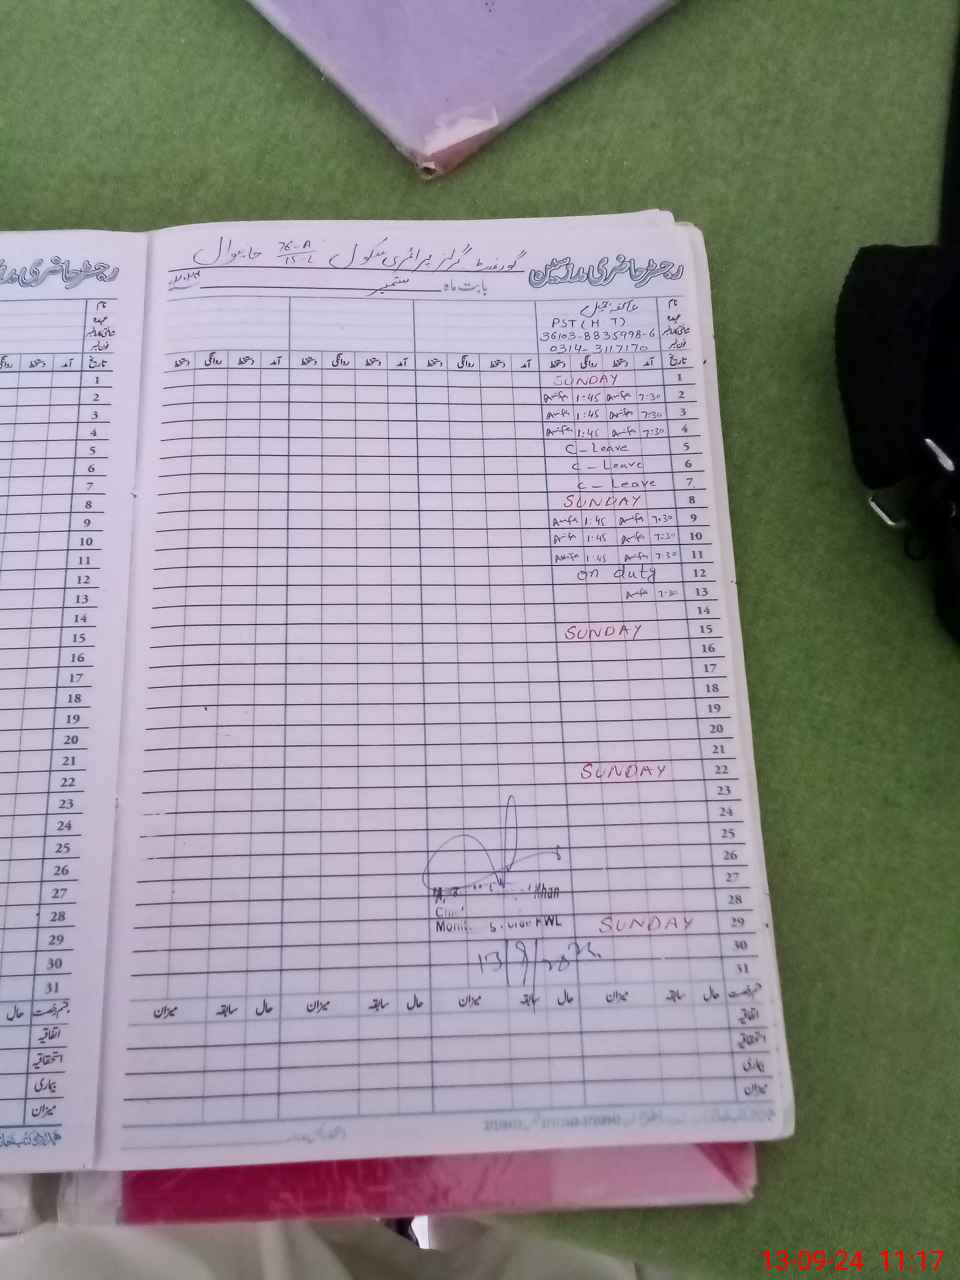 رجسٹر حاضری مدرسین گورنمنٹ گرلز پرائمری سکول 76-A/15-L
بابت ماہ ستمبر
نام
عہدہ PST (H T)
شناختی کارڈ نمبر 36103-8835998-6
فون نمبر 0314-3117170
تاریخ آمد دستخط روانگی دستخط آمد دستخط روانگی دستخط آمد دستخط روانگی دستخط آمد دستخط روانگی دستخط
1 SUNDAY
2 7:30 1:45
3 7:30 1:45
4 7:30 1:45
5 C-Leave
6 C-Leave
7 C-Leave
8 SUNDAY
9 7:30 1:45
10 7:30 1:45
11 7:30 1:45
12 on duty
13 7:30
14
15 SUNDAY
16
17
18
19
20
21
22 SUNDAY
23
24
25
26
27 Khan
28
29 SUNDAY KWL
30
31
قسم رخصت حال سابقہ میزان حال سابقہ میزان حال سابقہ میزان حال سابقہ میزان
اتفاقیہ
استحقاقیہ
بیماری
میزان
رجسٹر حاضری مدرسین
نام
عہدہ
شناختی کارڈ نمبر
فون نمبر
تاریخ آمد دستخط روانگی
1
2
3
4
5
6
7
8
9
10
11
12
13
14
15
16
17
18
19
20
21
22
23
24
25
26
27
28
29
30
31
قسم رخصت حال
اتفاقیہ
استحقاقیہ
بیماری
میزان
13-09-24 11:17